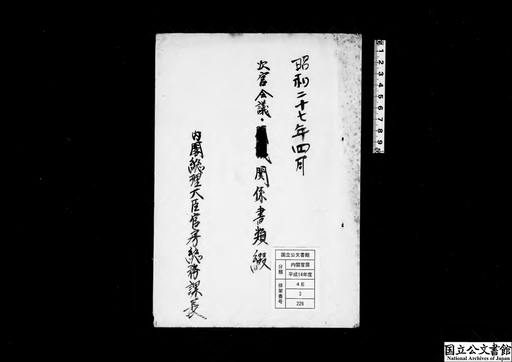 昭和二十七年四月
次官会議・
関係書類綴
内閣総理大臣官房総務課長
国立公文書館
分類
内閣官房
平成14年度
排架番号
4E
2
226
国立公文書館
National Archives of Japan